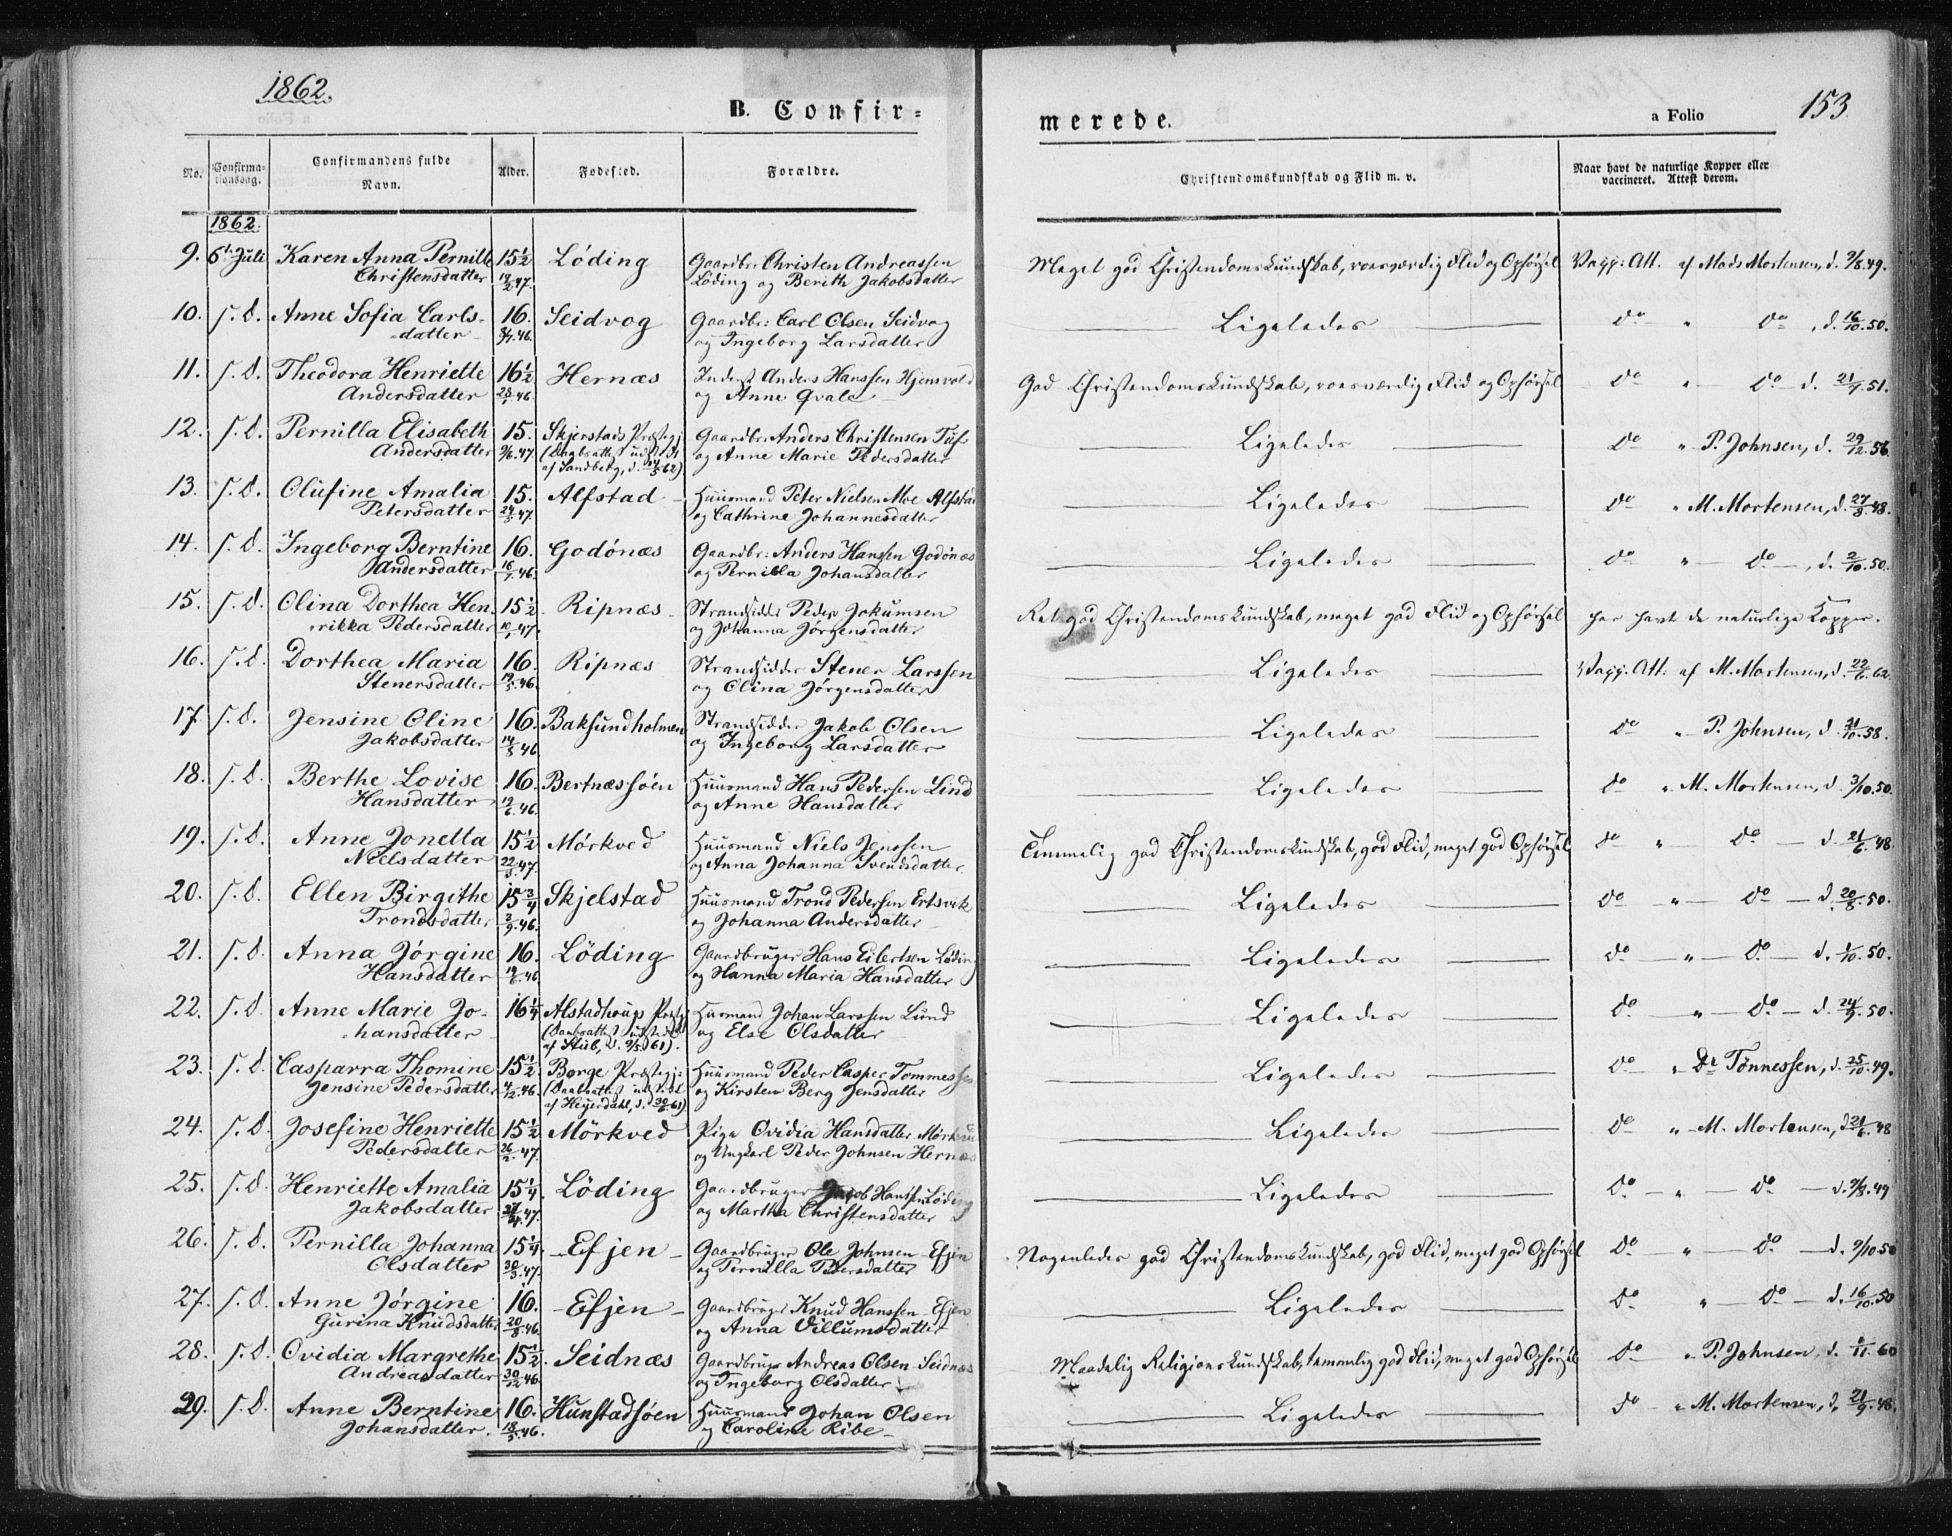 1862.
B. Confir-
merede.
a Folio
153.
No.
Confirma-
tionsdag.
Confirmandens fulde
Navn.
Alder.
Fødested.
Forældre.
Christendomskundskab og Flid m. v.
Naar havt de naturlige Kopper eller
vaccineret. Attest derom.
1862.
9. 6t Juli Karen Anna Pernille 15½ Löding Gaardbr: Christen Andreassen Meget god Christendomskundskab, roesværdig Flid og Opførsel Vacc: Att. af Mads Mortensen, d. 9/8.49.
Christensdatter 19/2.47. Löding og Berith Jakobsdatter
10. s. D. Anne Sofia Carls- 16. Seidvog Gaardbr: Carl Olsen Seidvog Ligeledes do " do, d. 16/10.50.
datter 46. og Ingeborg Larsdatter
11. s. D. Theodora Henriette 16½ Hernæs Inderst Anders Hanssen Hjemvold God Christendomskundskab, roesværdig Flid og Opførsel do " do d. 21/7.51.
Andersdatter 28/1.46. og Anne Qvale
12. s. D. Pernilla Elisabeth 15. Skjerstads Præstegj. Gaardbr: Anders Christensen Tuf Ligeledes do " P. Johnsen, d. 29/12.56.
Andersdatter 9/6.47. (Daabsattest udst. af Sandberg, d. 62) og Anne Marie Pedersdatter
13. s. D. Olufine Amalia 15. Alfstad Huusmand Peter Nielsen Moe Alfstad Ligeledes do " M. Mortensen, d. 27/8.48.
Petersdatter 24/5.47. og Cathrine Johannesdatter
14. s. D. Ingeborg Berntine 16. Godönæs Gaardbr: Anders Hanssen Godönæs Ligeledes do " do, d. 2/10.50.
Andersdatter 16/7.46. og Pernilla Johansdatter
15. s. D. Olina Dorthea Hen- 15½ Ripnæs Strandsidder Peder Jokumsen Ret god Christendomskundskab, meget god Flid og Opførsel har havt de naturlige Kopper.
rikka Pedersdatter 10/1.47. og Johanna Jørgensdatter
16. s. D. Dorthea Maria 16. Ripnæs Strandsidder Stener Larssen Ligeledes Vacc. Att. af M. Mortensen, d. 22/6.62.
Stenersdatter 19/5.46. og Olina Jørgensdatter
17. s. D. Jensine Oline 16. Baksundholmen Strandsidder Jakob Olsen Ligeledes do " P. Johnsen, d. 21/10.58.
Jakobsdatter 14/5.46. og Ingeborg Larsdatter
18. s. D. Berthe Lovise 16. Bertnæssjøen Huusmand Hans Pedersen Lind Ligeledes do " M. Mortensen, d. 3/10.50.
Hansdatter 19/6.46. og Anne Hansdatter
19. s. D. Anne Jonetta 15½ Mörkved Huusmand Niels Jenssen Temmelig god Christendomskundskab, god Flid, meget god Opførsel do " do d. 21/6.48.
Nielsdatter 22/3.47. og Anna Johanna Svendsdatter.
20. s. D. Ellen Birgithe 15¾ Skjelstad Huusmand Trond Pedersen Ertsvik Ligeledes do " do d. 20/8.50.
Trondsdatter 2/9.46. og Johanna Andersdatter
21. s. D. Anna Jørgine 16. Löding Gaardbruger Hans Eilertsen Löding Ligeledes do " do d. 1/10.50.
Hansdatter 19/6.46. og Hanna Maria Hansdatter
22. s. D. Anne Marie Jo- 16¼ Alstadhougs Præstgj. Husmand Johan Larssen Lund Ligeledes do " do d. 24/9.50.
hansdatter (Daabsattest udstedt af Stub, d. 9/5.61). og Else Olsdatter
23. s. D. Casparra Thomine 15½ Borge Præstegj: Huusmand Peder Casper Tommessen Ligeledes do " Dr Tønnessen, d. 25/10.49.
Jensine Pedersdatter 4/12.46. (Daabsattest udstedt af Heyerdahl, d. 30/6.61) og Kirsten Berg Jensdatter
24. s. D. Josefine Henriette 15½ Mörkved Pige Ovidia Hansdatter Mörkved Ligeledes do " M. Mortensen, d. 21/6.48
Pedersdatter 26/2.47. og Ungkarl Peder Johnsen Hernæs
25. s. D. Henriette Amalia 15¼ Löding Gaardbruger Jacob Hanssen Löding Ligeledes do " do d. 9/8.49
Jakobsdatter 47. og Martha Christensdatter
26. s. D. Pernilla Johanna 15¼ Efjen Gaardbruger Ole Johnsen Efjen Nogenledes god Christendomskundskab, god Flid, meget god Opførsel do " do d. 9/10.50
Olsdatter 30/3.47. og Pernilla Pedersdatter
27. s. D. Anne Jørgine 16. Efjen Gaardbruger Knud Hanssen Efjen Ligeledes do " do d. 16/10.50
Gurina Knudsdatter 20/5.46. og Anna Villumsdatter
28. s. D. Ovidia Margrethe 15½ Seidnæs Gaardbruger Andreas Olsen Seidnæs Maadelig Religionskundskab, temmelig god Flid, meget god Opførsel do " P. Johnsen, d. 60
Andreasdatter 30/12.46. og Ingeborg Olsdatter
29. s. D. Anne Berntine 16. Hunstadsöen Huusmand Johan Olsen Ligeledes do " M. Mortensen, d. 21/9.48.
Johansdatter. 18/5.46. og Caroline Ribe